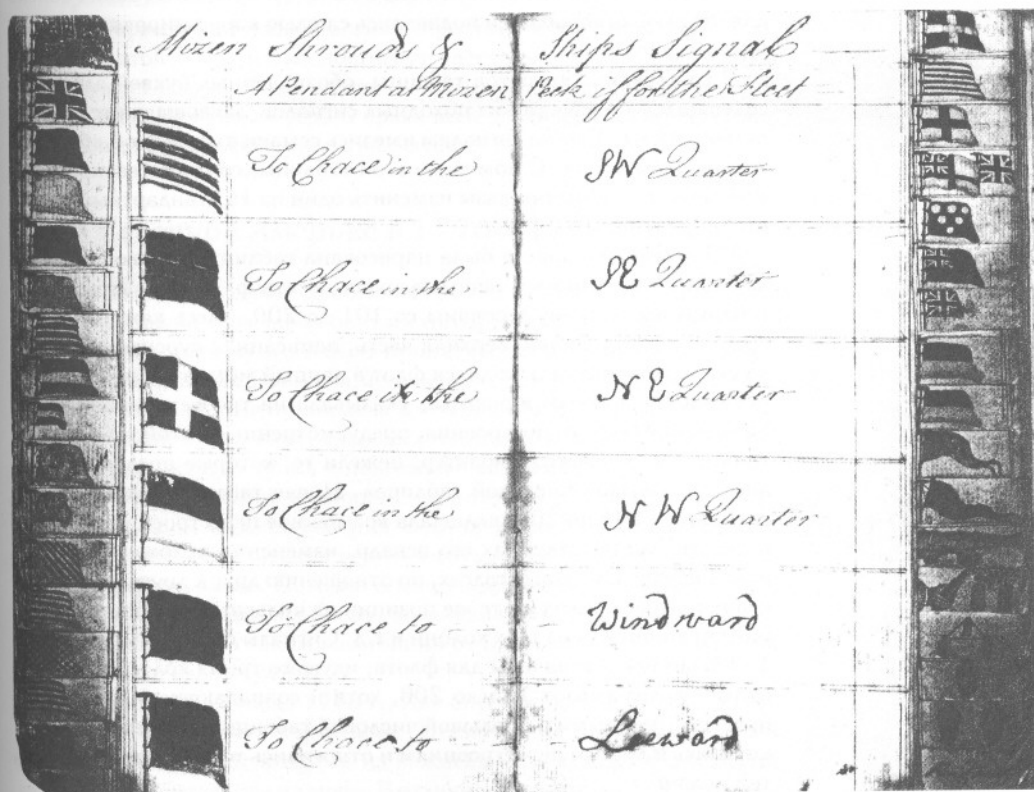 Mizen Shrouds & Ships Signal
A Pendant at Mizen Peek if for the Fleet
To Chace in the SW Quarter
To Chace in the SE Quarter
To Chace in the NE Quarter
To Chace in the NW Quarter
To Chace to Windward
To Chace to Leeward